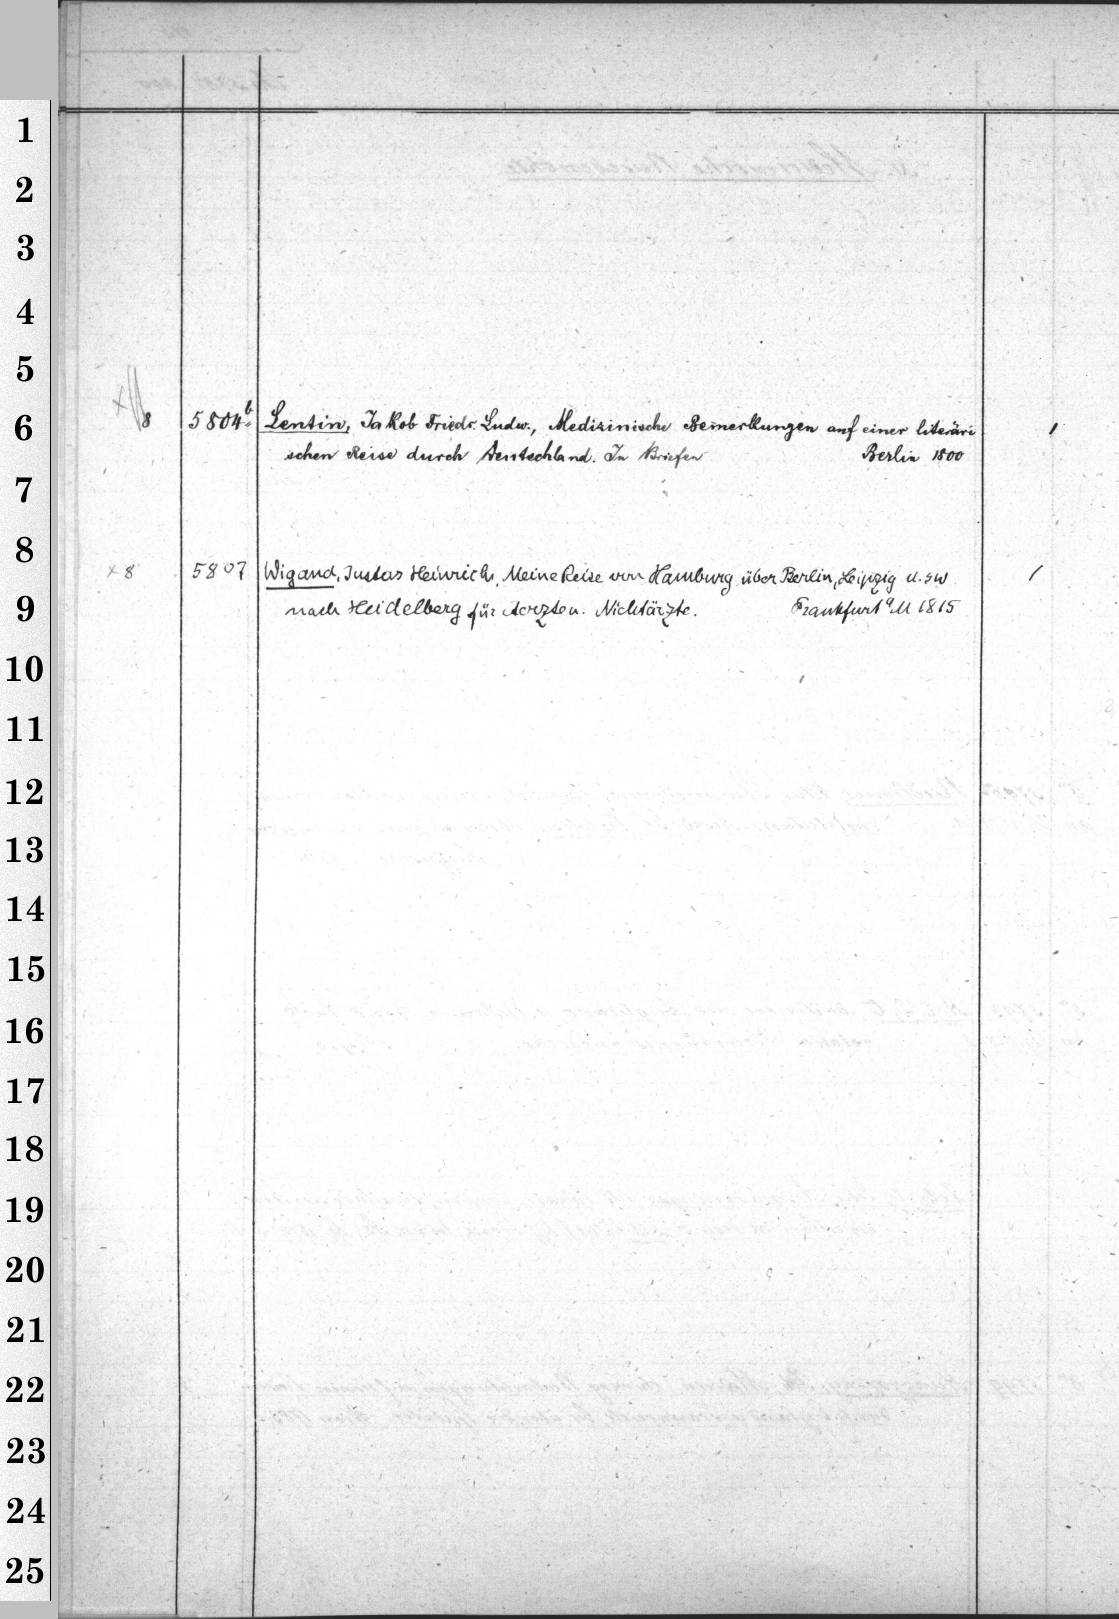 1
2
3
4
5
6
7
8
9
10
11
12
13
14
15
16
17
18
19
20
21
22
23
24
25
x 8 5804b. Lentin, Jakob Friedr. Ludw., Medizinische Bemerkungen auf einer literäri 1
schen Reise durch Deutschland. In Briefen Berlin 1800
x 8 5807 Wigand, Justus Heinrich, Meine Reise von Hamburg über Berlin, Leipzig u.sw 1
nach Heidelberg für Aerzte u. Nichtärzte. Frankfurt a M 1815